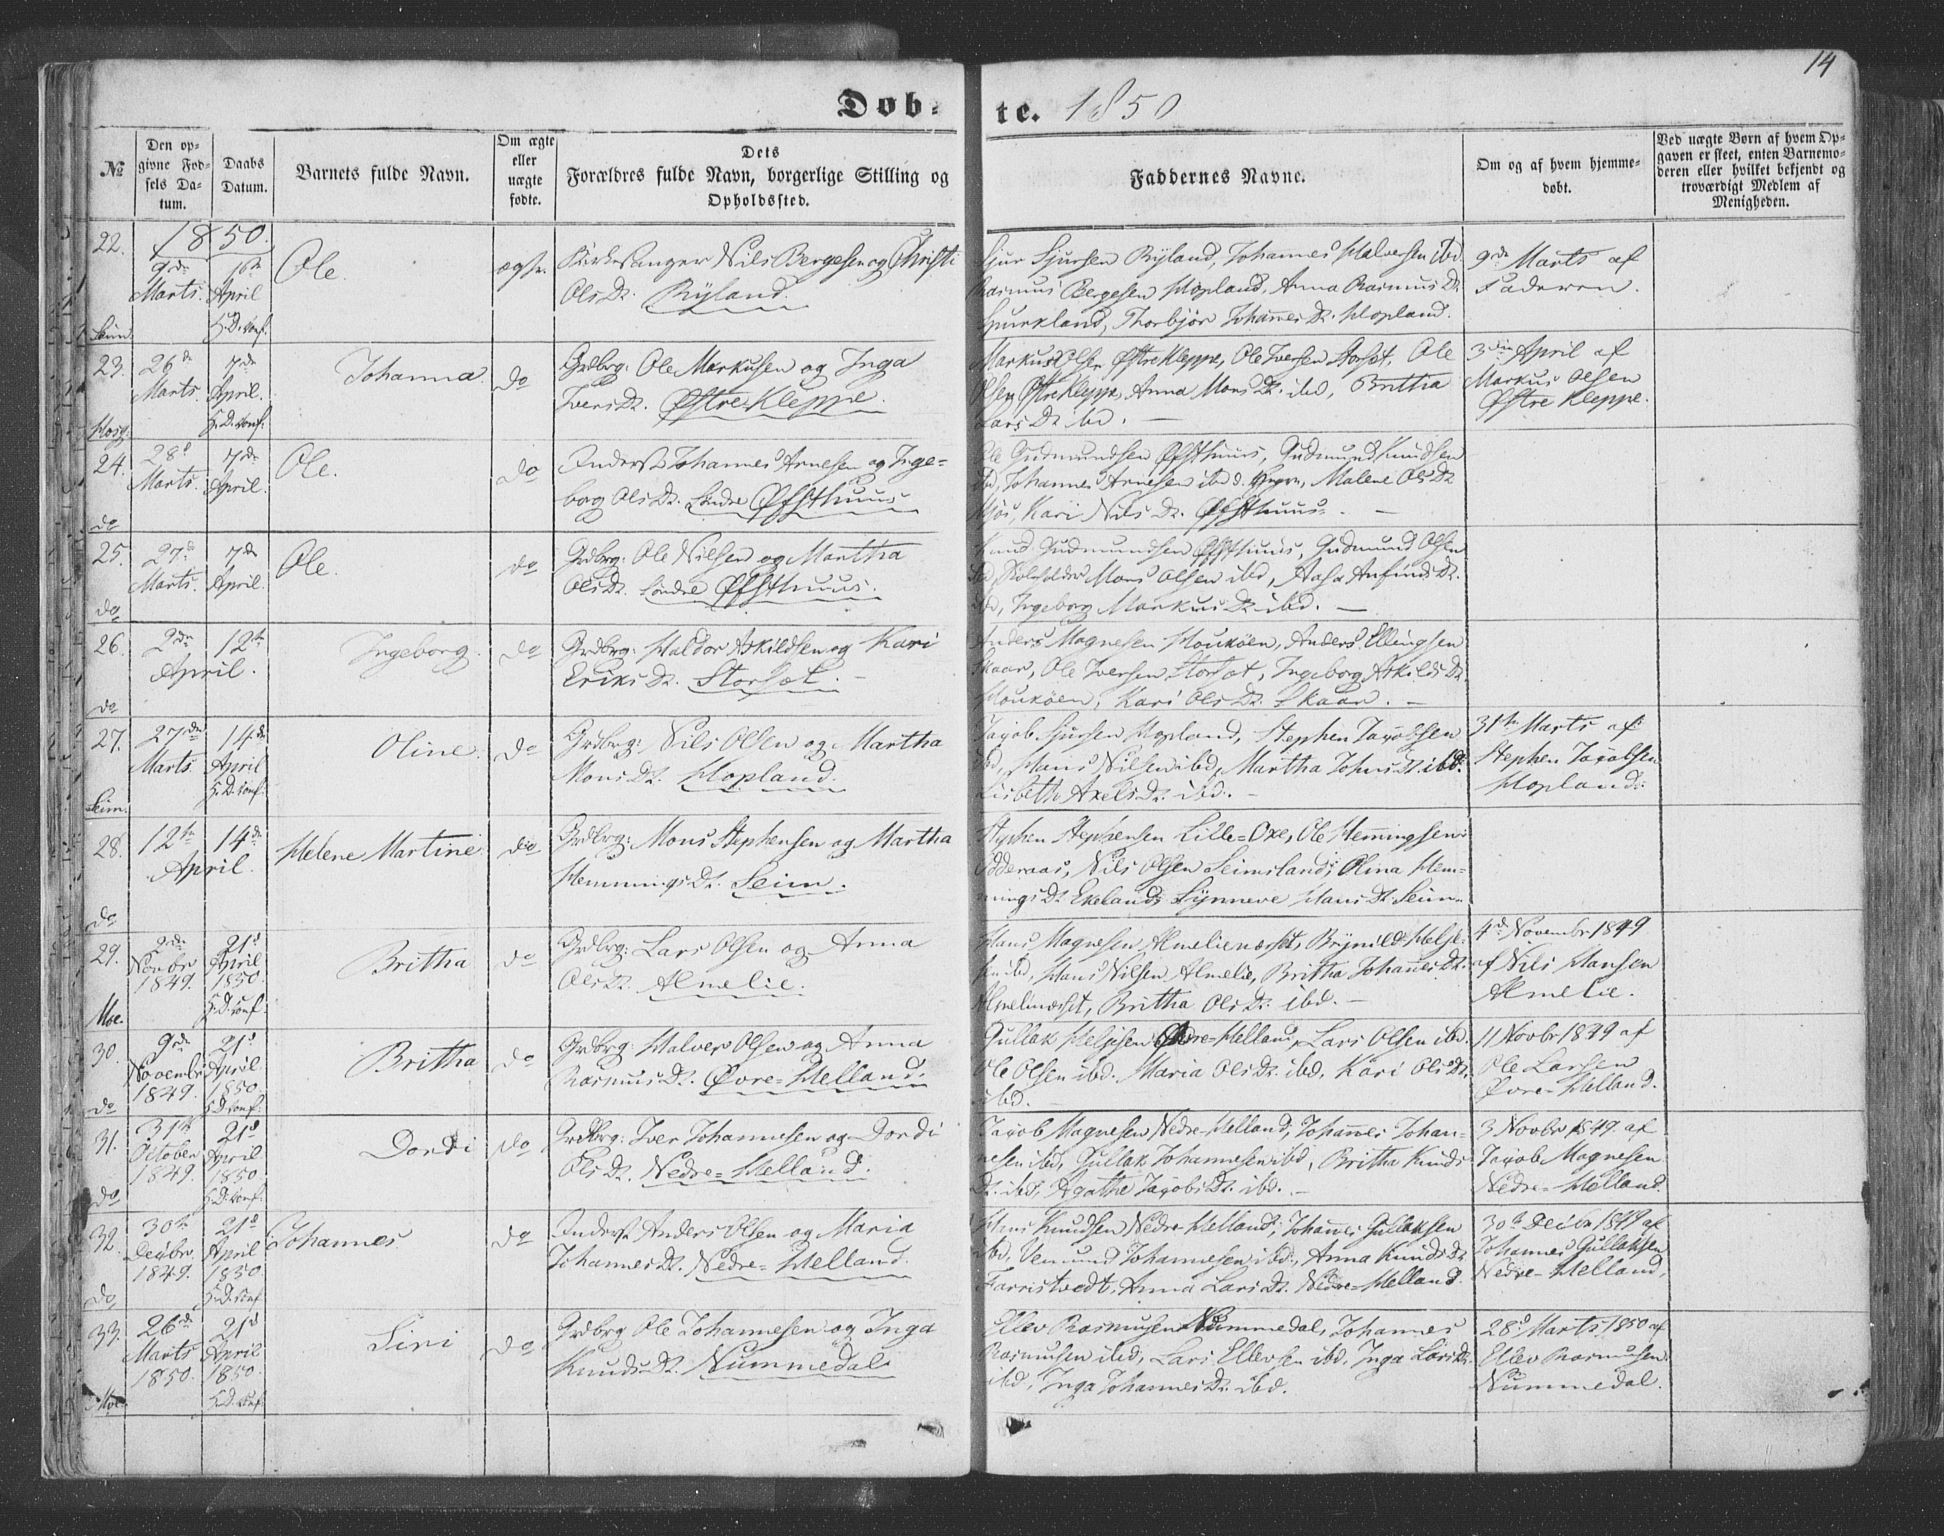 14
Døb-
te. 1850
№
Den op-
givne Fød-
sels Da-
tum.
Daabs
Datum.
Barnets fulde Navn.
Om ægte
eller
uægte
fødte.
Dets
Forældres fulde Navn, borgerlige Stilling og
Opholdssted.
Faddernes Navne.
Om og af hvem hjemme-
døbt.
Ved uægte Børn af hvem Op-
gaven er skeet, enten Barnemo-
deren eller hvilket bekjendt og
troværdigt Medlem af
Menigheden.
1850.
22.
Seim
9de
Marts.
1ste
April
H.D. conf.
Ole.
ægte.
Kirkesanger Nils Bergesen og Christi
Olsdr. Ryland.
Sjur Sjursen Ryland, Johannes Halvorsen ibd.
Rasmus Bergesen Hopland, Anna Rasmusdr.
Thorbjør Johannesdr. Hopland.
9de Marts af
Faderen.
23.
Hosg.
26de
Marts.
7de
April.
H.D. conf.
Johanna.
do
Grdbrg: Ole Markusen og Inga
Iversdr. Østre-Kleppe.
Markus Olsen Østre Kleppe, Ole Iversen Storset, Ole
Olsen Østre Kleppe, Anna Monsdr. ibd, Britha
Larsdr. ibd. —
3die April af
Markus Olsen
Østre Kleppe.
24.
do
28d
Marts.
7de
April.
Ole.
do
Inderst Johannes Arnesen og Inge-
borg Olsdr. Søndre Øfsthuus
Ole Gudmundsen Øfsthuus, Gudmund Knudsen
ibd, Johannes Arnesen ibd, Malene Olsdr.
Kari Nilsdr. Øfsthuus. —
25.
do
27d
Marts.
7de
April.
Ole.
do
Grdbrg: Ole Nilsen og Martha
Olsdr. Søndre Øfsthuus.
Knud Gudmundsen Øfsthuus, Gudmund Olsen
ibd, Mons Olsen ibd, Aasa Anfindsdr.
ibd, Ingeborg Markusdr. ibd. —
26.
do
2den
April.
12te
Ingeborg.
do
Grdbrg: Haldor Askildsen og Kari
Eriksdr. Storset. —
Anders Magnesen Houkøen, Anders Ellingsen
Skaar, Ole Iversen Storset, Ingeborg Askildsdr.
Houkøen, Kari Olsdr. Skaar. —
27.
Seim.
27de
Marts
14de
April
H.D. conf.
Oline.
do
Grdbrg: Nils Olsen og Martha
Monsdr. Hopland.
Jacob Sjursen Hopland, Stephen Jacobsen
ibd, Hans Nilsen ibd, Martha Johnsdr. ibd.
Lisbeth Axelsdr. ibd. —
31te Marts af
Stephen Jacobsen
Hopland.
28.
do
12te
April.
14de
Helene Martine
do
Grdbrg: Mons Stephensen og Martha
Hemmingsdr. Seim.
Stephen Stephensen Lille-Oxe, Ole Hemmingsen
Odderaas, Nils Olsen Seimsland, Olina Hem-
mingsdr. Ekeland, Synneve Hansdr. Seim.
29.
Moe.
2den
Novbr
1849.
21d
April
1850.
H.D. conf.
Britha
do
Grdbrg: Lars Olsen og Anna
Olsdr. Almelie.
Hans Magnesen Almelienæset, Brynild Helje-
sen ibd, Hans Nilsen Almelie, Britha Johannesdr.
Almelinæsset, Britha Olsdr. ibd. —
4de Novembr 1849
af Nils Hansen
Almelie.
30.
do
9de
Novembr
1849.
21d
April
1850.
H.D. conf.
Britha
do
Grdbrg: Halvor Olsen og Anna
Rasmusdr. Øvre-Helland.
Gullak Heljesen Øvre-Helland, Lars Olsen ibd.
Ole Olsen ibd. Maria Olsdr. ibd, Kari Olsdr.
ibd. —
11 Novbr 1849 af
Ole Larsen
Øvre-Helland.
31.
do
31te
October
1849.
21d
April
1850
H.D. conf.
Dordi
do
Grdbrg: Iver Johannesen og Dordi
Olsdr. Nedre-Helland.
Jacob Magnesen Nedre-Helland, Johannes Johan-
nesen ibd, Gullak Johannesen ibd, Britha Knuds-
dr. ibd, Agathe Jacobsdr. ibd. —
3 Novbr 1849. af
Jacob Magnesen
Nedre-Helland.
32.
do
30te
Decbr.
1849.
21d
April
1850
H.D. conf
Johannes
do
Inderst Anders Olsen og Maria
Johannesdr. Nedre-Helland.
Hans Knudsen Nedre-Helland, Johannes Gullaksen
ibd. Vemund Johannesen ibd, Anna Knudsdr.
Farristvedt, Anna Larsdr. Nedre-Helland.
30te Decbr 1849 af
Johannes Gullaksen
Nedre-Helland,
33.
Moe.
26de
Marts
1850.
21d
April
1850.
H.D. conf
Siri
do
Grdbrg Ole Johannesen og Inga
Knudsdr. Nummedal
Ellev Rasmusen Nummedal, Johannes
Rasmusen ibd, Lars Ellevsen ibd, Inga Larsdr.
ibd, Inga Johannesdr. ibd.
28d Marts 1850 af
Ellev Rasmusen
Nummedal.